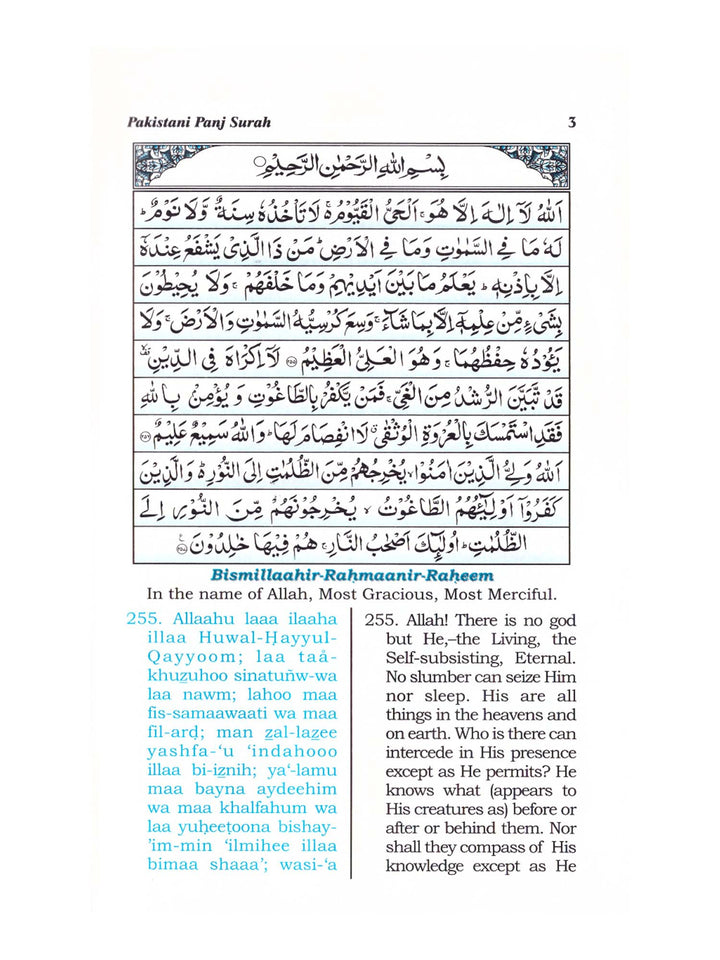 Pakistani Panj Surah 3
بِسْمِ اللهِ الرَّحْمٰنِ الرَّحِيْمِ○
اَللهُ لَآ اِلٰهَ اِلَّا هُوَ ۚ اَلْحَيُّ الْقَيُّوْمُ ۬ۚ لَا تَاْخُذُهٗ سِنَةٌ وَّلَا نَوْمٌ ؕ
لَهٗ مَا فِي السَّمٰوٰتِ وَمَا فِي الْاَرْضِ ؕ مَنْ ذَا الَّذِيْ يَشْفَعُ عِنْدَهٗٓ
اِلَّا بِاِذْنِهٖ ؕ يَعْلَمُ مَا بَيْنَ اَيْدِيْهِمْ وَمَا خَلْفَهُمْ ۚ وَلَا يُحِيْطُوْنَ
بِشَيْءٍ مِّنْ عِلْمِهٖٓ اِلَّا بِمَا شَآءَ ۚ وَسِعَ كُرْسِيُّهُ السَّمٰوٰتِ وَالْاَرْضَ ۚ وَلَا
يَئُوْدُهٗ حِفْظُهُمَا ۚ وَهُوَ الْعَلِيُّ الْعَظِيْمُ ﴿۲۵۵﴾ لَآ اِكْرَاهَ فِي الدِّيْنِ ۙ
قَدْ تَّبَيَّنَ الرُّشْدُ مِنَ الْغَيِّ ۚ فَمَنْ يَّكْفُرْ بِالطَّاغُوْتِ وَ يُؤْمِنْۢ بِاللهِ
فَقَدِ اسْتَمْسَكَ بِالْعُرْوَةِ الْوُثْقٰى ۗ لَا انْفِصَامَ لَهَا ؕ وَاللهُ سَمِيْعٌ عَلِيْمٌ ﴿۲۵۶﴾
اَللهُ وَلِيُّ الَّذِيْنَ اٰمَنُوْا ۙ يُخْرِجُهُمْ مِّنَ الظُّلُمٰتِ اِلَى النُّوْرِ ؕ۬ وَالَّذِيْنَ
كَفَرُوْٓا اَوْلِيٰٓئُهُمُ الطَّاغُوْتُ ۙ يُخْرِجُوْنَهُمْ مِّنَ النُّوْرِ اِلَى
الظُّلُمٰتِ ؕ اُولٰٓئِكَ اَصْحٰبُ النَّارِ ۚ هُمْ فِيْهَا خٰلِدُوْنَ ﴿۲۵۷﴾
Bismillaahir-Raḥmaanir-Raḥeem
In the name of Allah, Most Gracious, Most Merciful.
255. Allaahu laaa ilaaha
illaa Huwal-Ḥayyul-
Qayyoom; laa taå-
khuz̲uhoo sinatuñw-wa
laa nawm; lahoo maa
fis-samaawaati wa maa
fil-arḍ; man z̲al-lazee
yashfa-‘u ‘indahooo
illaa bi-iz̲nih; ya‘-lamu
maa bayna aydeehim
wa maa khalfahum wa
laa yuḥeetoona bishay-
’im-min ‘ilmihee illaa
bimaa shaaa’; wasi-‘a
255. Allah! There is no god
but He,–the Living, the
Self-subsisting, Eternal.
No slumber can seize Him
nor sleep. His are all
things in the heavens and
on earth. Who is there can
intercede in His presence
except as He permits? He
knows what (appears to
His creatures as) before or
after or behind them. Nor
shall they compass of His
knowledge except as He